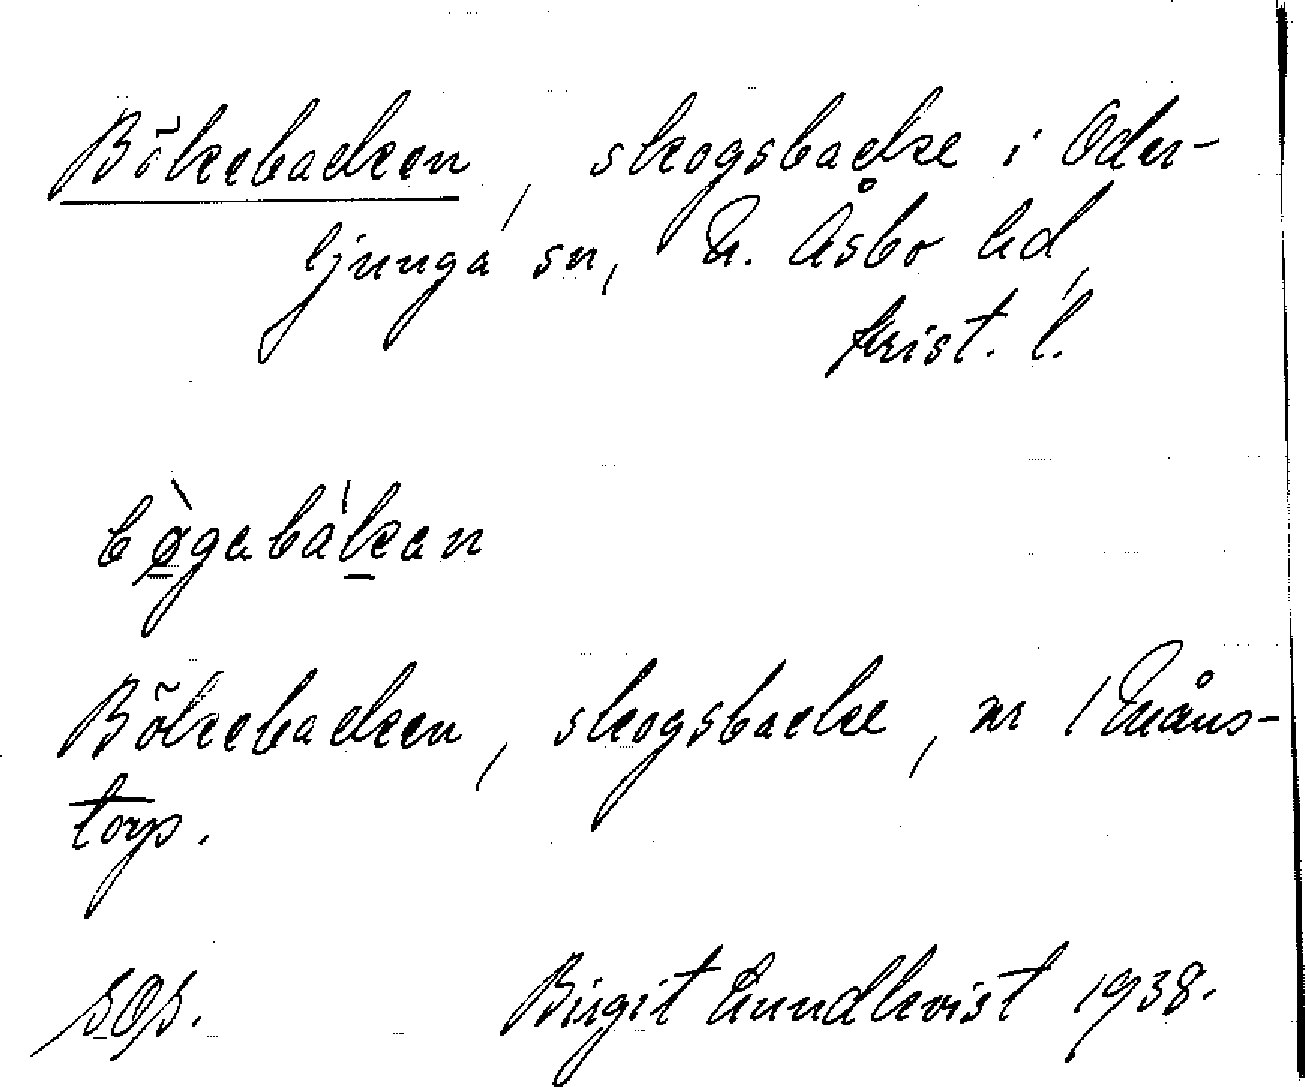 Bökebacken, skogsbacke i Oder-
ljunga sn, N. Åsbo hd,
Krist. l.
bø̀gabákan
Bökebacken, skogsbacke, nr 1 Måns-
torp.
SOS. Birgit Lundkvist 1938.